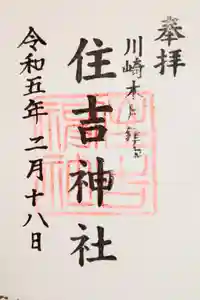 奉拝
川崎木月
住吉神社
令和五年二月十八日